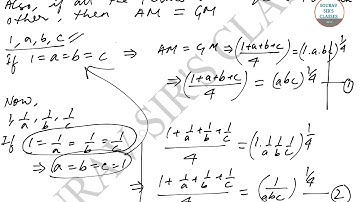 Also, if all the
other, then AM = GM
SOURAV SIR'S CLASSES
1, a, b, c
If 1 = a = b = c ⇒ AM = GM ⇒ (1+a+b+c)/4 = (1.a.b.c)^1/4
⇒ (1+a+b+c)/4 = (abc)^1/4 — ①
Now,
1, 1/a, 1/b, 1/c
If 1 = 1/a = 1/b = 1/c
⇒ a = b = c = 1
(1 + 1/a + 1/b + 1/c)/4 = (1. 1/a 1/b 1/c)^1/4
⇒ (1 + 1/a + 1/b + 1/c)/4 = (1/abc)^1/4 — ②
SOURAV SIR'S CLASSES